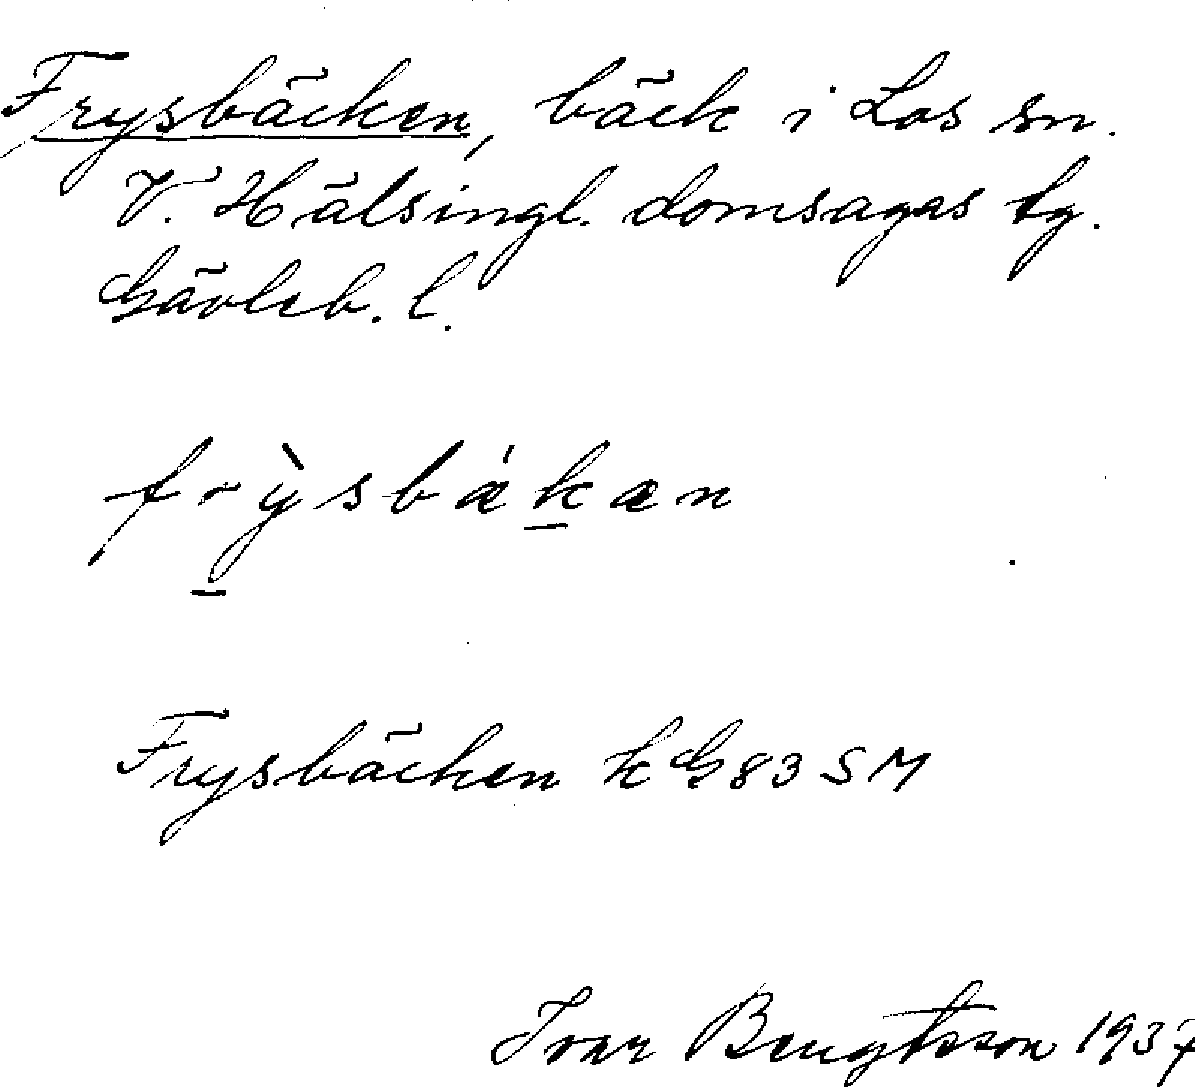 Frysbäcken, bäck i Los sn.
V. Hälsingl. domsagas tg.
Gävleb. l.
frỳ̱sbǽḵæn
Frysbäcken kG83SM
Ivar Bengtsson 1937